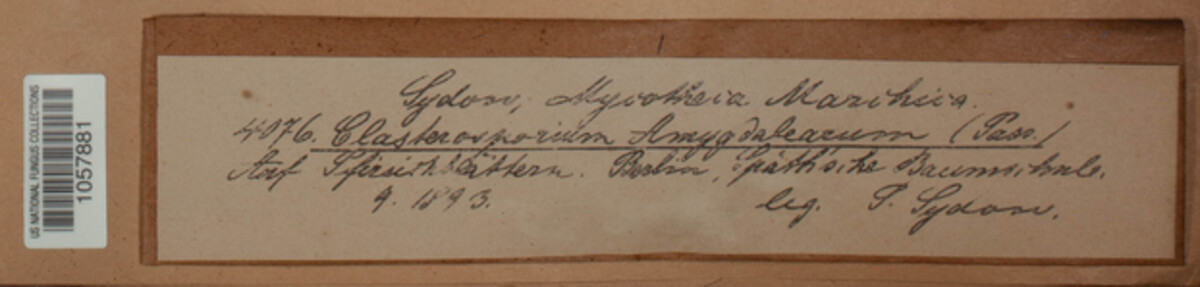 US NATIONAL FUNGUS COLLECTIONS
01057881
Sydow, Mycotheca Marchica.
4076. Clasterosporium Amygdalearum (Pass.)
Auf Pfirsichblättern. Berlin, Späth'sche Baumschule.
9. 1893. leg. P. Sydow.